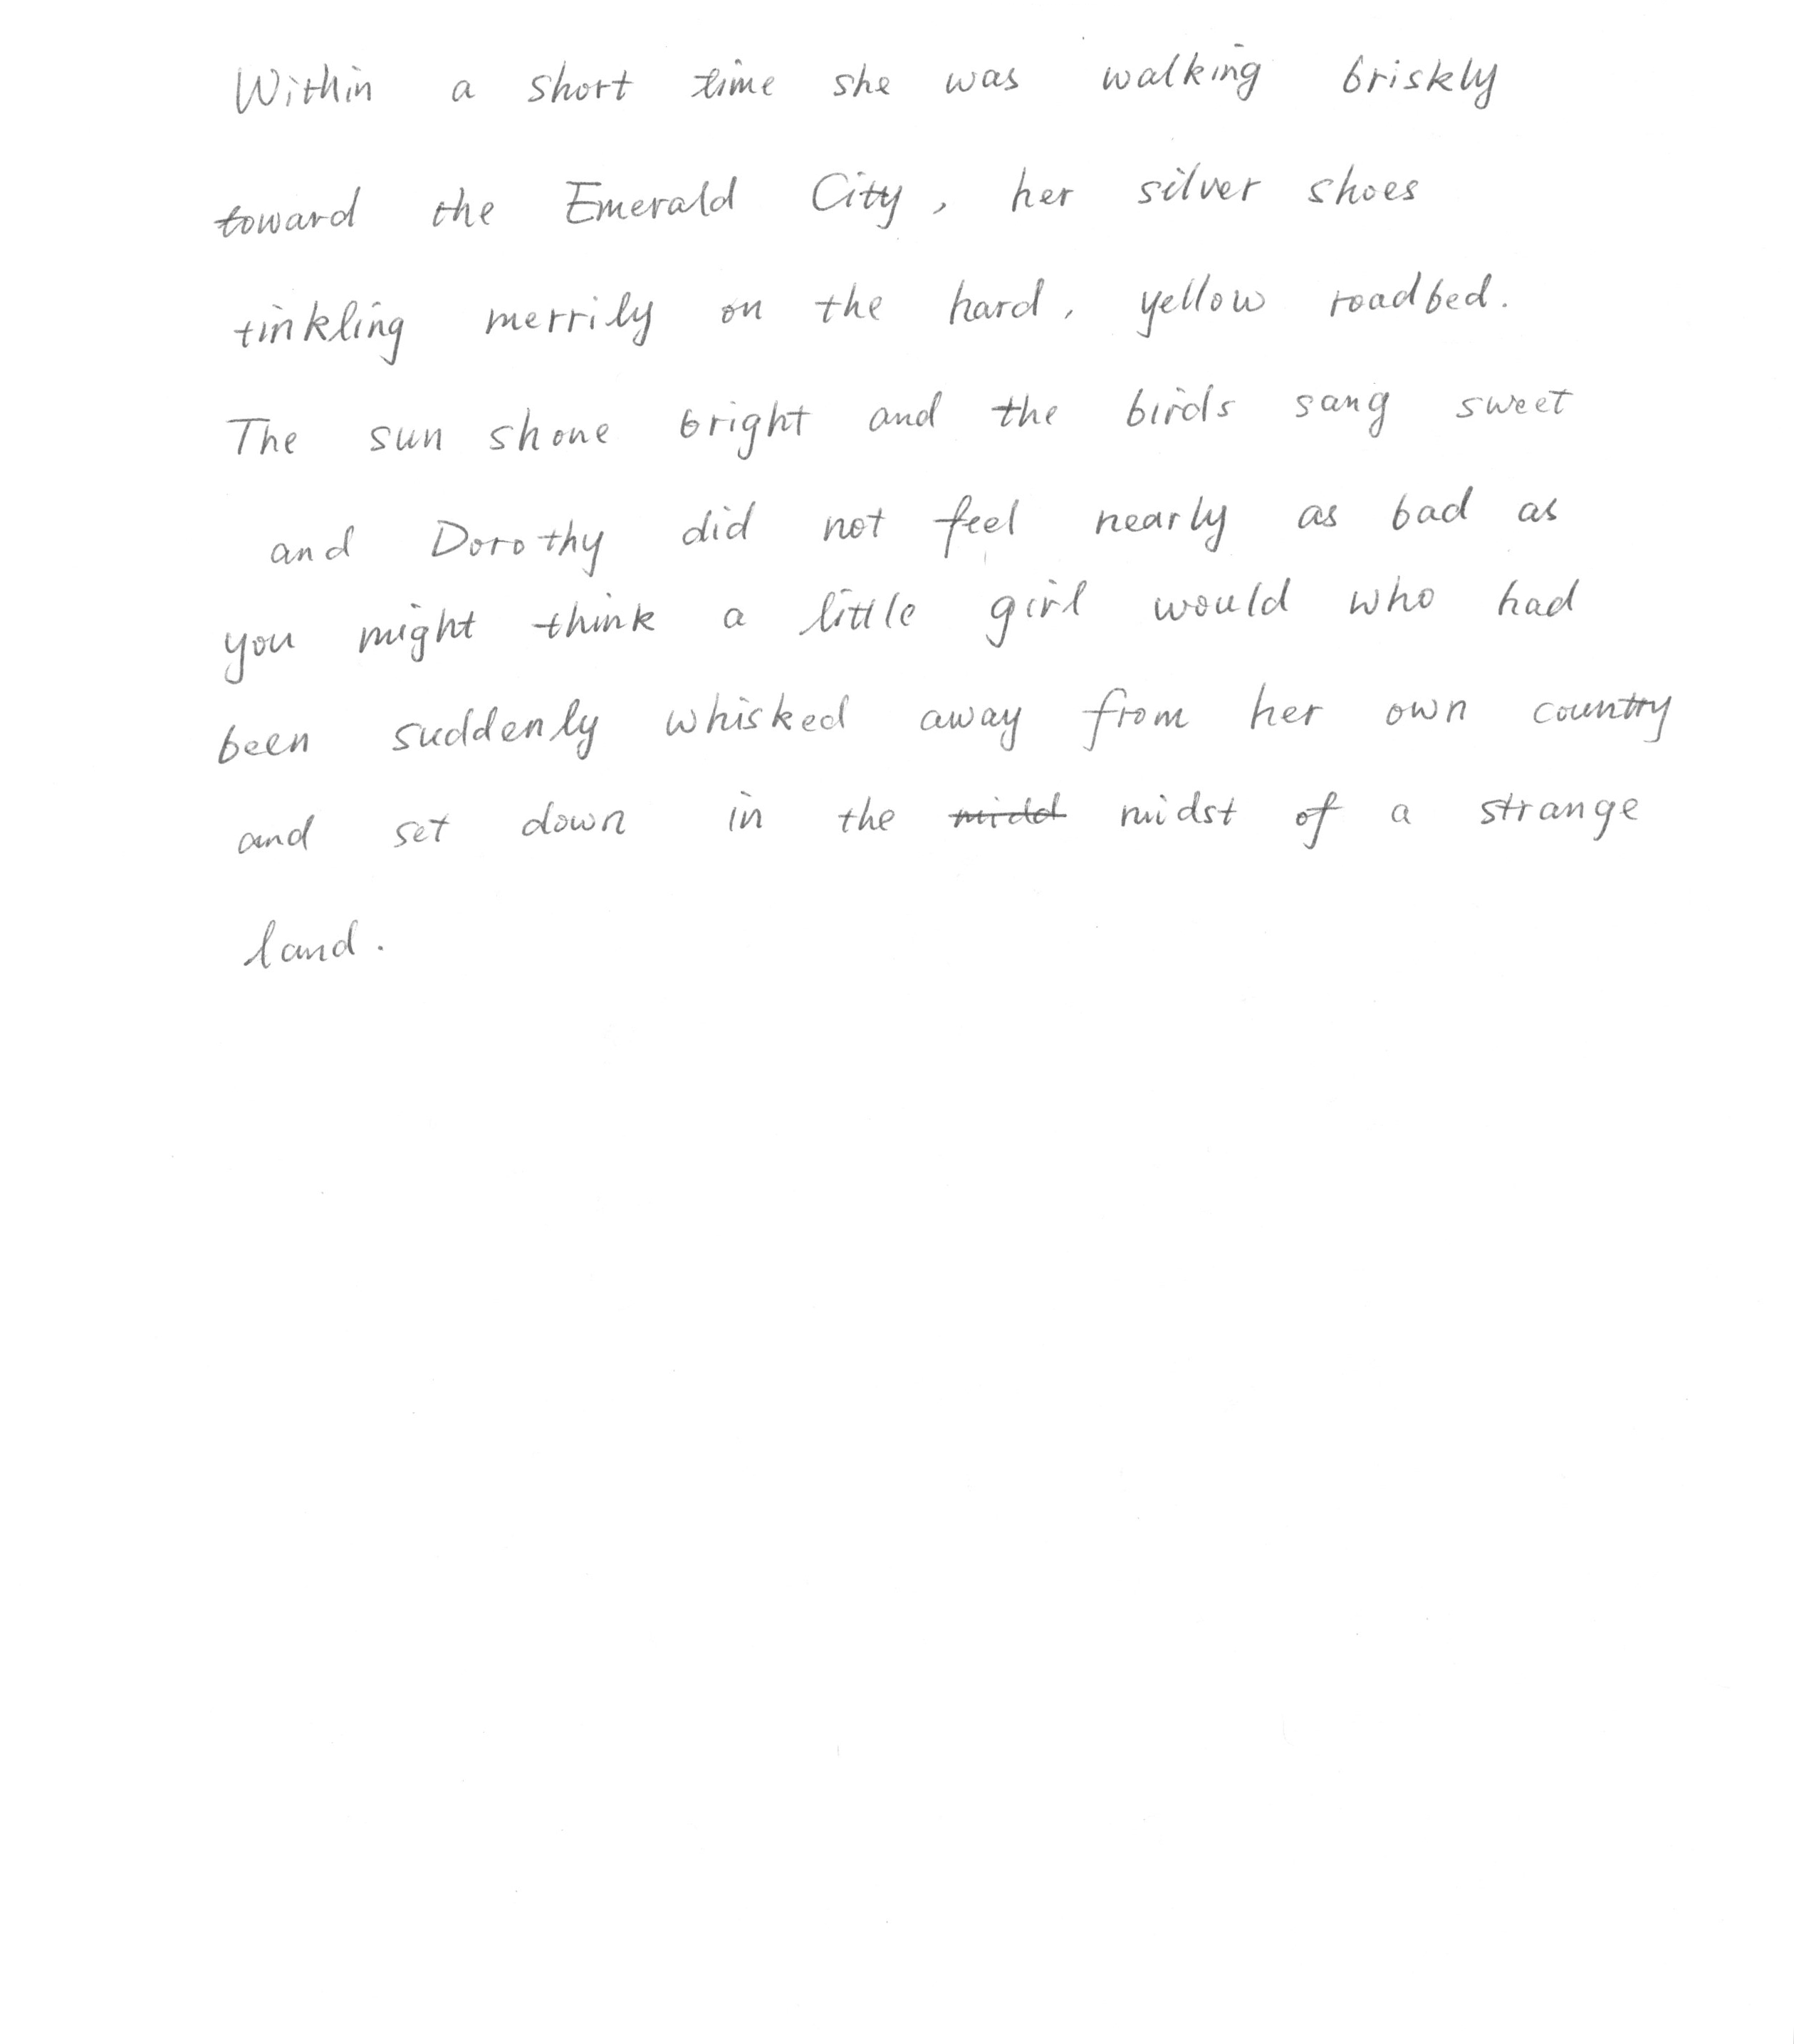 Within a short time she was walking briskly
toward the Emerald City, her silver shoes
tinkling merrily on the hard, yellow roadbed.
The sun shone bright and the birds sang sweet
and Dorothy did not feel nearly as bad as
you might think a little girl would who had
been suddenly whisked away from her own country
and set down in the midd midst of a strange
land.